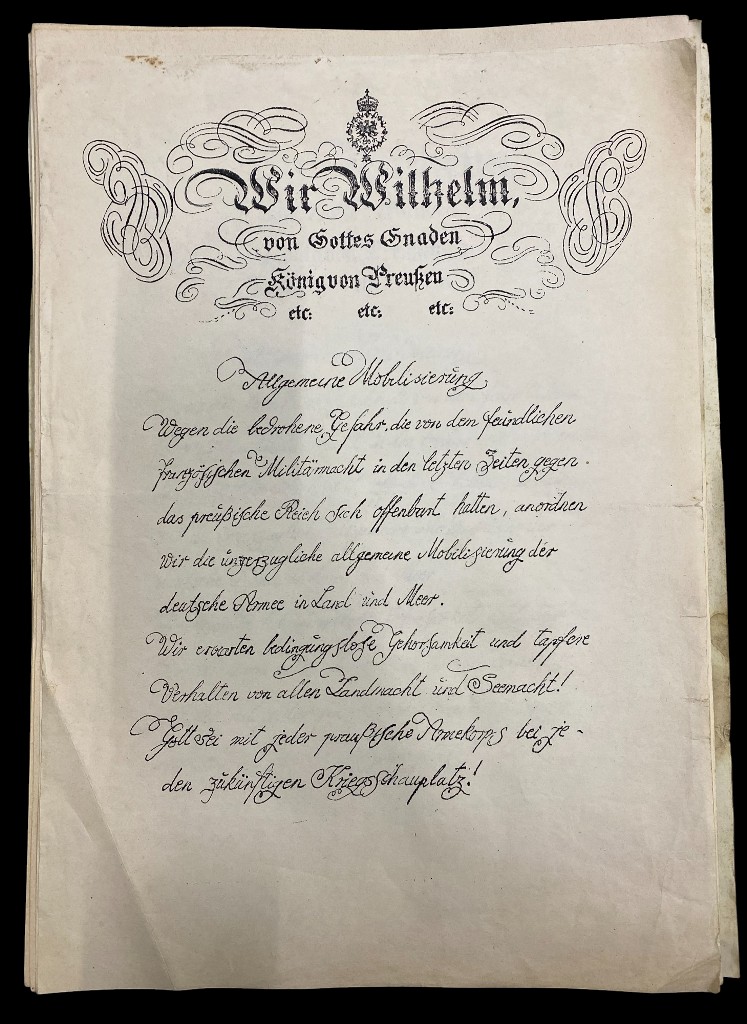 Wir Wilhelm,
von Gottes Gnaden
König von Preußen
etc: etc: etc:
Allgemeine Mobilisierung
Wegen die bedrohene Gefahr, die von dem feindlichen
französischen Militärmacht in den letzten Zeiten gegen
das preußische Reich sich offenbart hatten, anordnen
Wir die unverzugliche allgemeine Mobilisierung der
deutsche Armee in Land und Meer.
Wir erwarten bedingungslose Gehorsamkeit und tapfere
Verhalten von allen Landmacht und Seemacht!
Gott sei mit jeder preußische Armekorps bei je-
den zukünftigen Kriegsschauplatz!